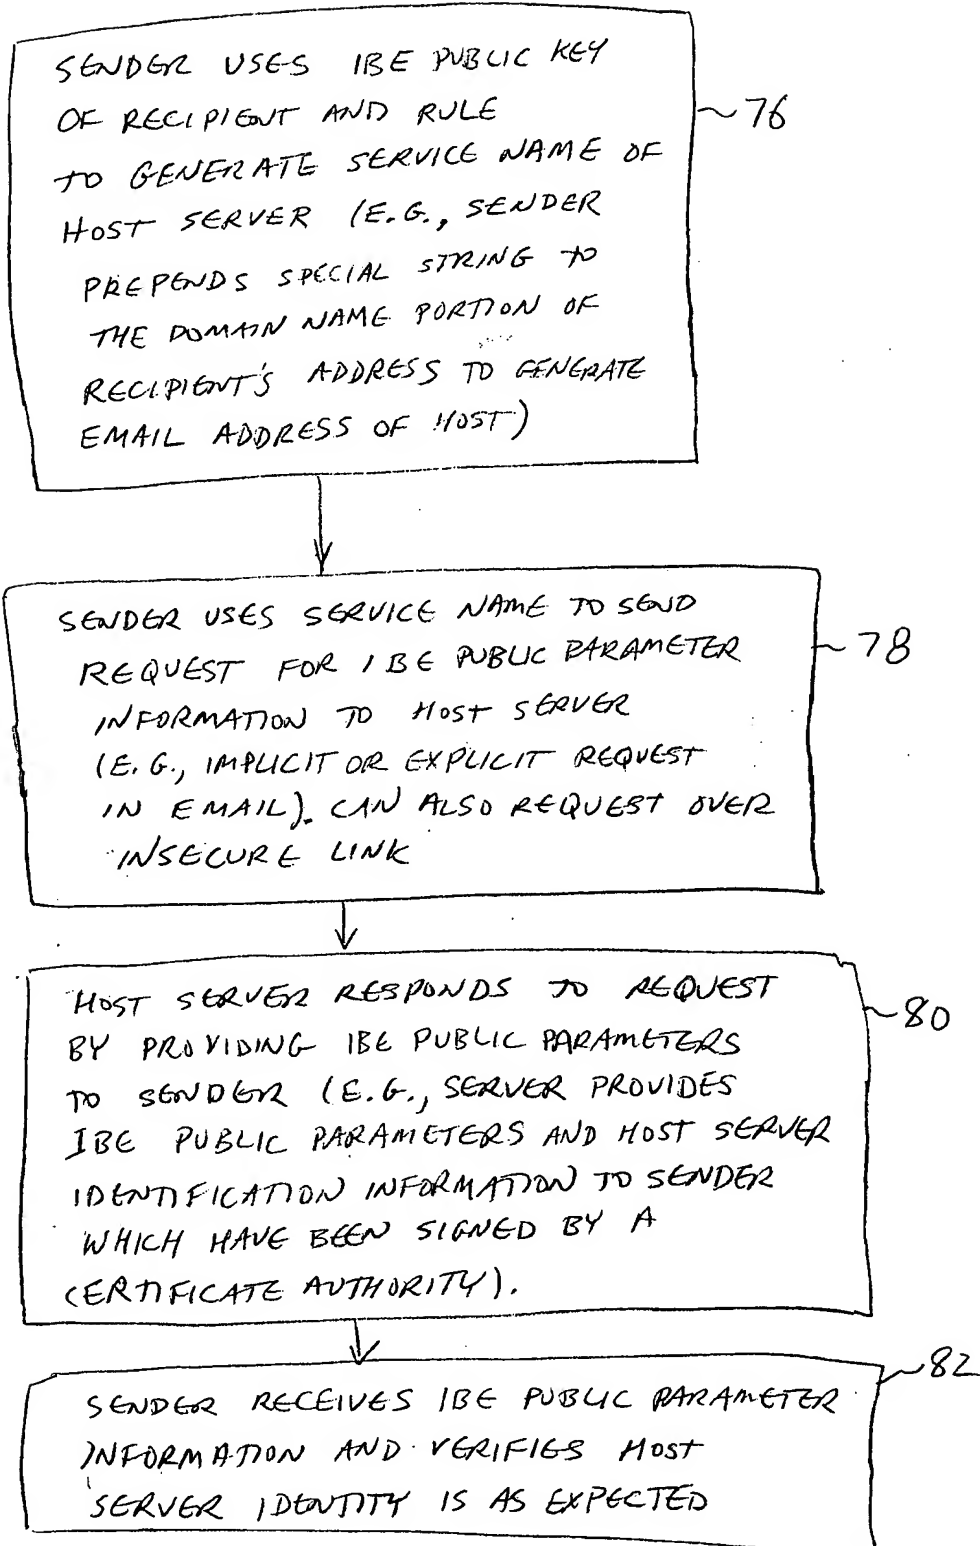 SENDER USES IBE PUBLIC KEY
OF RECIPIENT AND RULE
TO GENERATE SERVICE NAME OF
HOST SERVER (E.G., SENDER
PREPENDS SPECIAL STRING TO
THE DOMAIN NAME PORTION OF
RECIPIENT'S ADDRESS TO GENERATE
EMAIL ADDRESS OF HOST)
76
SENDER USES SERVICE NAME TO SEND
REQUEST FOR IBE PUBLIC PARAMETER
INFORMATION TO HOST SERVER
(E.G., IMPLICIT OR EXPLICIT REQUEST
IN EMAIL). CAN ALSO REQUEST OVER
INSECURE LINK
78
HOST SERVER RESPONDS TO REQUEST
BY PROVIDING IBE PUBLIC PARAMETERS
TO SENDER (E.G., SERVER PROVIDES
IBE PUBLIC PARAMETERS AND HOST SERVER
IDENTIFICATION INFORMATION TO SENDER
WHICH HAVE BEEN SIGNED BY A
CERTIFICATE AUTHORITY).
80
SENDER RECEIVES IBE PUBLIC PARAMETER
INFORMATION AND VERIFIES HOST
SERVER IDENTITY IS AS EXPECTED
82